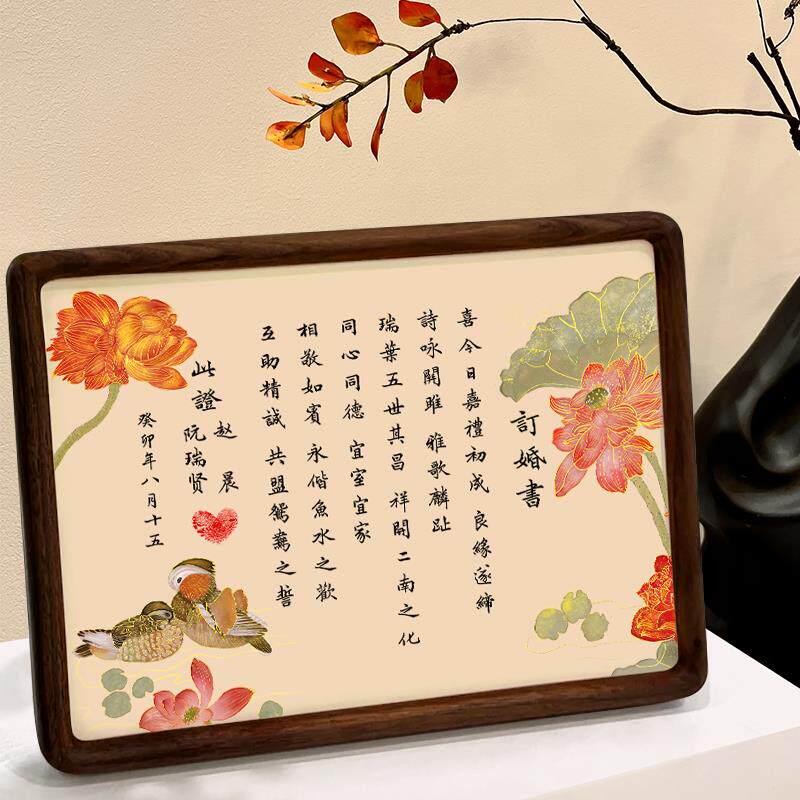 訂婚書
喜今日嘉禮初成 良緣遂締
詩咏關雎 雅歌麟趾
瑞葉五世其昌 祥開二南之化
同心同德 宜室宜家
相敬如賓 永偕魚水之歡
互助精誠 共盟鴛鴦之誓
此證
赵晨
阮瑞贤
癸卯年八月十五